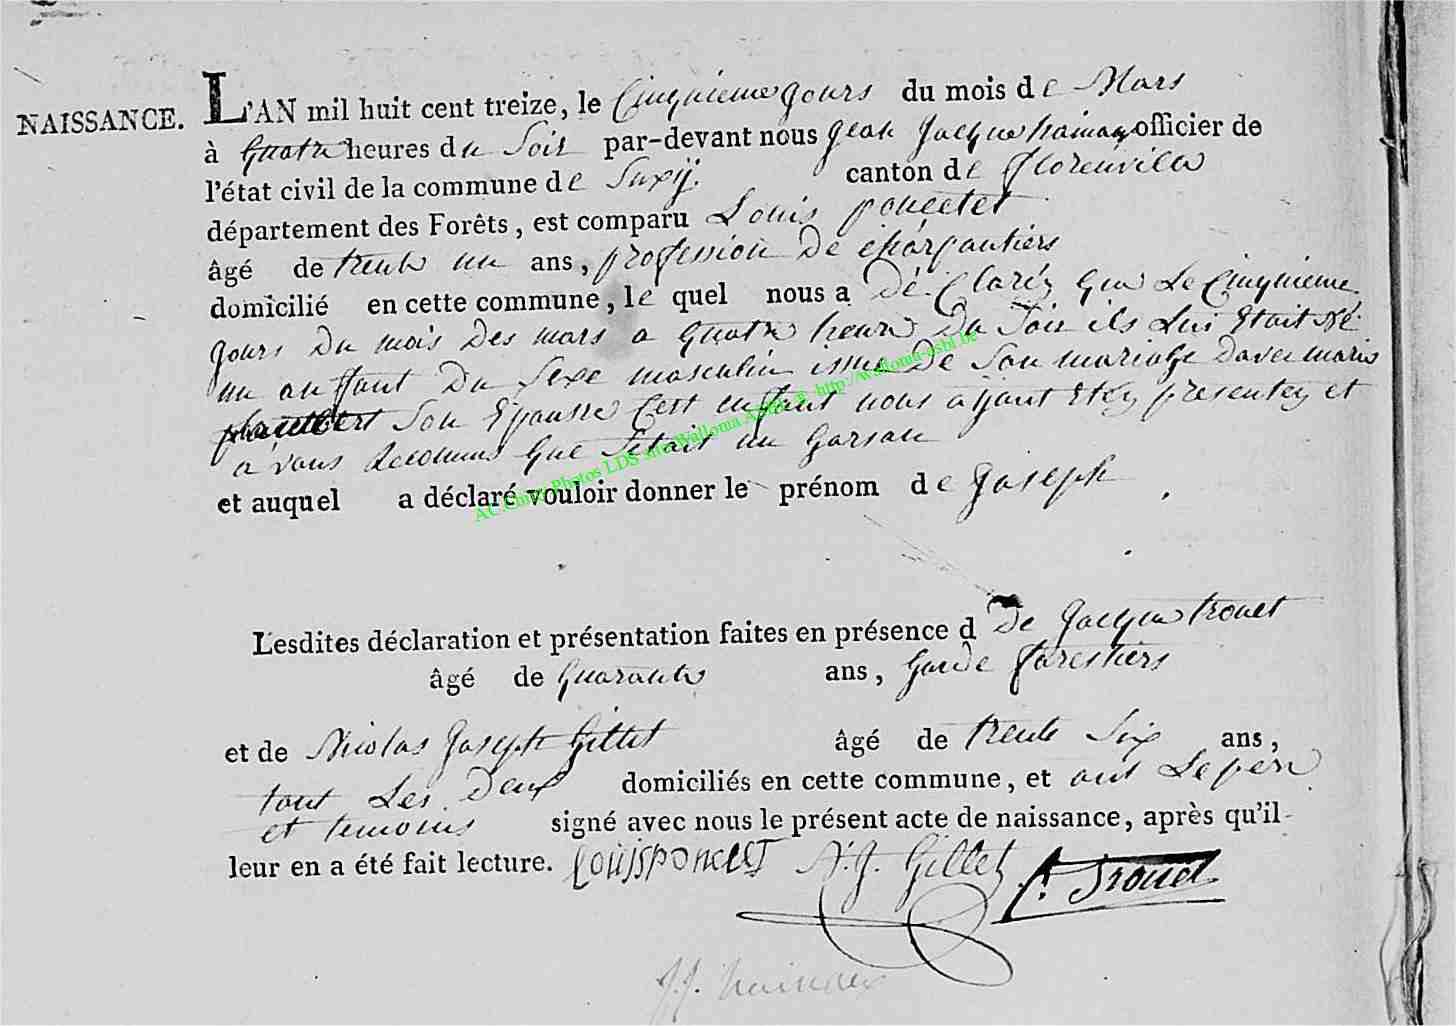 NAISSANCE.
L'AN mil huit cent treize, le Cinquieme jours du mois de Mars
à Quatre heures du Soir par-devant nous Jean Jacque hainaux officier de
l'état civil de la commune de Suxÿ. canton de florenville
département des Forêts, est comparu Louis poncelet
âgé de trente un ans, profession De charpantiers
domicilié en cette commune, le quel nous a Dé Claréz Que Le Cinquieme
jours Du mois Des mars a Quatre heure Du Soir ils Lui Etait Né
un anffant Du Sexe masculin issue De Son mariage Davec marie
Son Epousse Cest enffant nous aÿant Etéz presentez et
a vons Reconnus Que S'etais un Garson
et auquel a déclaré vouloir donner le prénom de Joseph
AC Chiny Photos LDS site Walloma ASBL @ http://walloma-asbl.be
Lesdites déclaration et présentation faites en présence d De Jacque trouet
âgé de Quarante ans, Garde forestiers
et de Nicolas Joseph Gillet âgé de trente Six ans,
tout Les Deux domiciliés en cette commune, et ont Le pere
et temoins signé avec nous le présent acte de naissance, après qu'il
leur en a été fait lecture. LOUIS PONCELET N. J. Gillet J. Trouet
J. J. hainaux